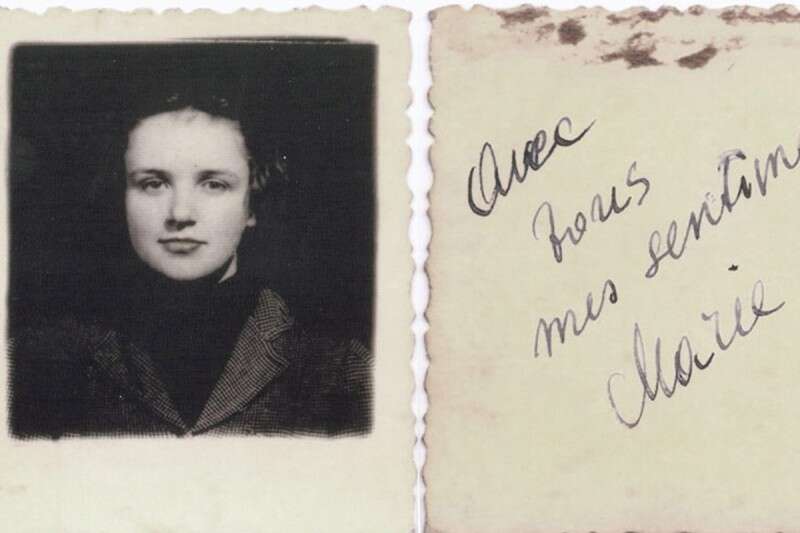 Avec
tous
mes sentim
Marie